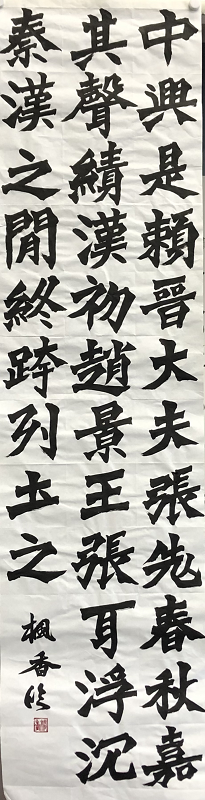 中興是賴晉大夫張先春秋嘉
其聲績漢初趙景王張耳浮沉
秦漢之間終跨列土之
楓香臨